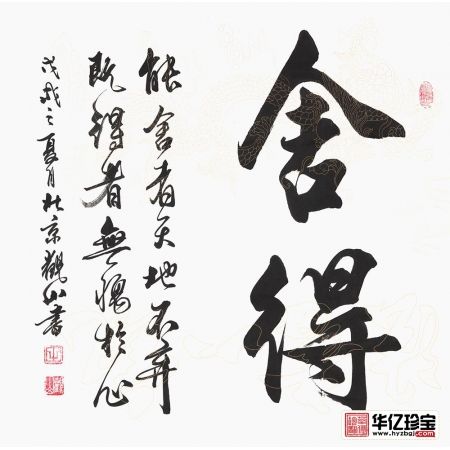 舍得
能舍者天地不弃
既得者無愧於心
戊戌之夏月於京观山書
华亿珍宝
www.hyzbgj.com